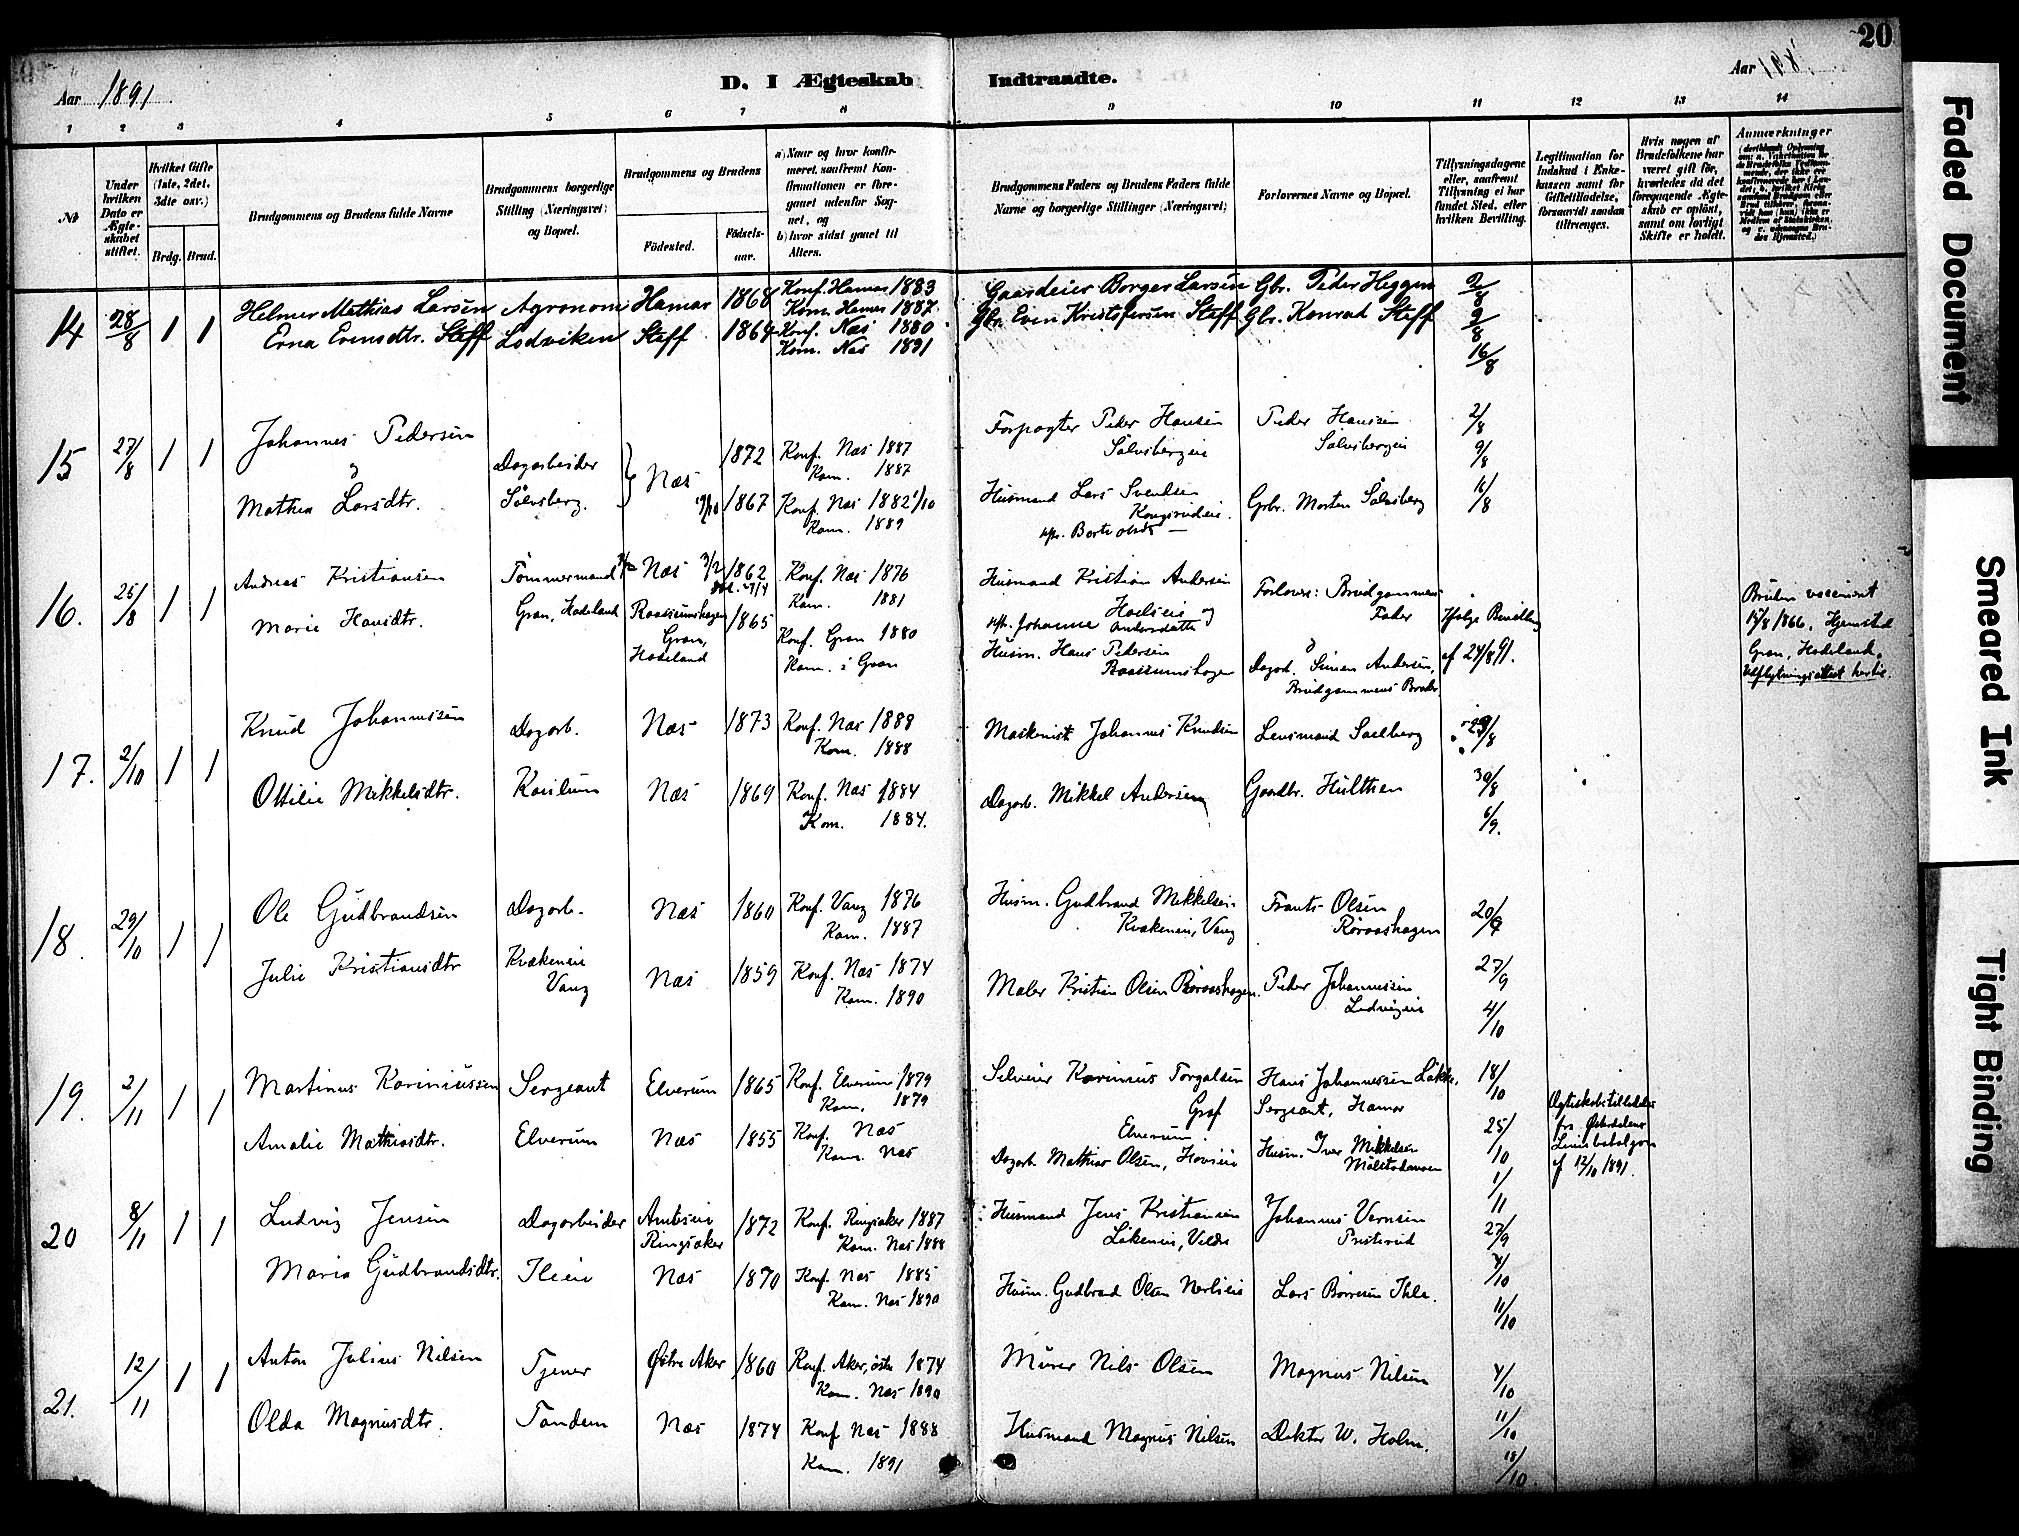 20
Aar 1891
D. I Ægteskab Indtraadte.
Aar 1891
1 2 3 4 5 6 7 8 9 10 11 12 13 14
№
Under hvilken Dato er Ægteskabet stiftet.
Hvilket Gifte (1ste, 2det, 3dte osv.)
Brdg. Brud.
Brudgommens og Brudens fulde Navne
Brudgommens borgerlige Stilling (Næringsvei) og Bopæl.
Brudgommens og Brudens
Födested.
Födsels-aar.
a) Naar og hvor konfirmeret, saafremt Konfirmationen er foregaaet udenfor Sognet, og
b) hvor sidst gaaet til Alters.
Brudgommens Faders og Brudens Faders fulde Navne og borgerlige Stillinger (Næringsvei)
Forlovernes Navne og Bopæl.
Tillysningsdagene eller, saafremt Tillysning ei har fundet Sted, efter hvilken Bevilling.
Legitimation for Indskud i Enkekassen samt for Giftetilladelse, forsaavidt saadan tiltrænges.
Hvis nogen af Brudefolkene har været gift før, hvorledes da det foregaaende Ægteskab er oplöst, samt om lovligt Skifte er holdt.
Anmærkninger
14 28/8 1 1 Helmer Mathias Larsen Agronom Hamar 1868 Konf. Hamar 1883 Gaardeier Borger Larsen Gbr. Peder Heggen 2/8
Kom. Hamar 1887
Erna Evensdtr. Steff Lodviken Steff 1864 Konf. Næs 1880 Gbr. Even Kristofersen Steff Gbr. Konrad Steff 9/8
Kom. Næs 1891 16/8
15 27/8 1 1 Johannes Pedersen Dagarbeider Næs 1872 Konf. Næs 1887 Forpagter Peder Hansen Peder Hansen 2/8
Kom. 1887 Sølvsbergeie Sølvsbergeie 9/8
Mathea Larsdtr. Sølvsberg. 1867 Konf. Næs 1882 1/10 Husmand Lars Svendsen Grbr. Morten Sølvsberg 16/8
Kom. 1889
16. 25/8 1 1 Andreas Kristiansen Tømmermand Næs 3/2 1862 Konf. Næs 1876 Husmand Kristian Andersen Forlover: Brudgommens Fader
Kom. 1881 og
Marie Hansdtr. Gran, Hadeland Gran, Hadeland 1865 Konf. Gran 1880 Johanne Andersdatter Ifølge Bevilling
Kom. i Gran Husm. Hans Pedersen Dagarb. Simen Andersen, af 24/8 91.
Brudgommens Broder
Bruden vaccineret
17/8 1866. Hjemsted
Gran, Hadeland.
Udflytningsattest
17. 2/10 1 1 Knud Johannessen Dagarb. Næs 1873 Konf. Næs 1888 Maskenist Johannes Knudsen Lensmand Saelberg 23/8
Kom. 1888
Ottilie Mikkelsdtr. Næs 1869 Konf. Næs 1884 Dagarb. Mikkel Andersen Gaardbr. Hulthen 30/8
Kom. 1884. 6/9.
18. 29/10 1 1 Ole Gudbrandsen Dagarb. Næs 1860 Konf. Vang 1876 Husm. Gudbrand Mikkelsen Frants Olsen 20/9
Kom. 1887 Kvækeneie, Vang Røraashagen
Julie Kristiansdtr Kvækeneie Vang Næs 1859 Konf. Næs 1874 Maler Kristian Olsen Røraashagen. Peder Johannessen 27/9
Kom. 1890 4/10
19. 2/11 1 1 Martinus Karinius​sen Sergeant Elverum 1865 Konf. Elverum 1879 Selveier Karinius Torgalsen Hans Johannessen Løkke. 18/10
Kom. 1879 Graf Elverum Sergeant, Hamar
Amalie Mathiasdtr. Elverum Næs 1855 Konf. Næs Dagarb. Mathias Olsen, Hovseie Husm. Iver Mikkelsen 25/10
Kom. Næs 1/11
Ægteskabstilladelse
fra Østerdalens
Liniebataljon
af 12/10 1891.
20 8/11 1 1 Ludvig Jensen Dagarbeider Ringsaker 1872 Konf. Ringsaker 1887 Husmand Jens Kristiansen Johannes Vernsen 27/9
Kom. Næs 1888 Løkeneie, Veldre Presterud
Maria Gudbrandsdtr. Ileeie Næs 1870 Konf. Næs 1885 Husm. Gudbrand Olsen Nerlieie Lars Børresen Ihle. 4/10
Kom. Næs 1890 11/10
21. 12/11 1 1 Anton Julius Nilsen Tjener Østre Aker 1860 Konf. Aker, østre 1874 Murer Nils Olsen Magnus Nilsen 4/10
Kom. Næs 1890
Olda Magnusdtr. Tandem Næs 1874 Konf. Næs 1888 Husmand Magnus Nilsen Doktor W. Holm. 11/10
Kom. 1891 18/10
Faded Document
Smeared Ink
Tight Binding